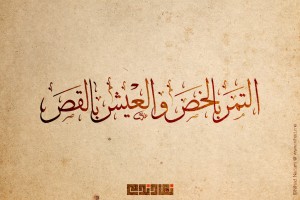 التمر بالخص والعيش بالقص